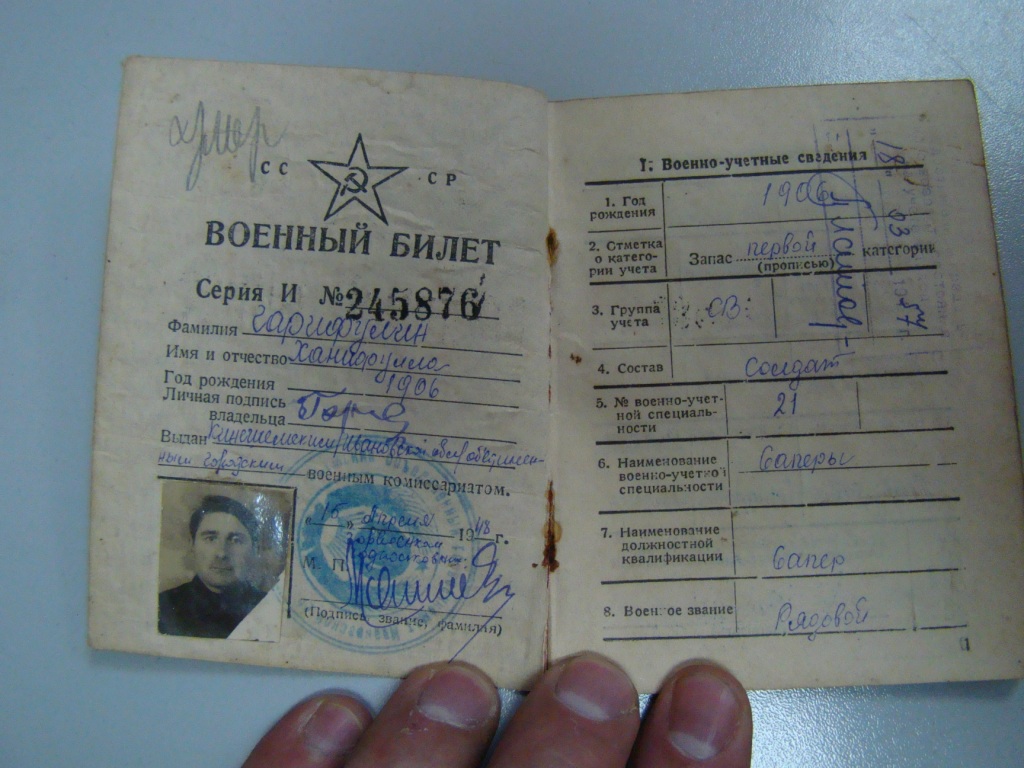 умер
СС СР
ВОЕННЫЙ БИЛЕТ
Серия И № 245876
Фамилия Гарифулин
Имя и отчество Ханифулла
Год рождения 1906
Личная подпись
владельца
Выдан Кинешемским Ивановской обл. объединен-
ным городским военным комиссариатом.
"16" Апреля 1948 г.
М. П.
(Подпись, звание, фамилия)
I. Военно-учетные сведения
1. Год
рождения
1906
2. Отметка
о катего-
рии учета
Запас первой категории
(прописью)
3. Группа
учета
СВ
4. Состав
Солдат
5. № военно-учет-
ной специаль-
ности
21
6. Наименование
военно-учетной
специальности
Саперы
7. Наименование
должностной
квалификации
Сапер
8. Военное звание
Рядовой
"18" 03 1957